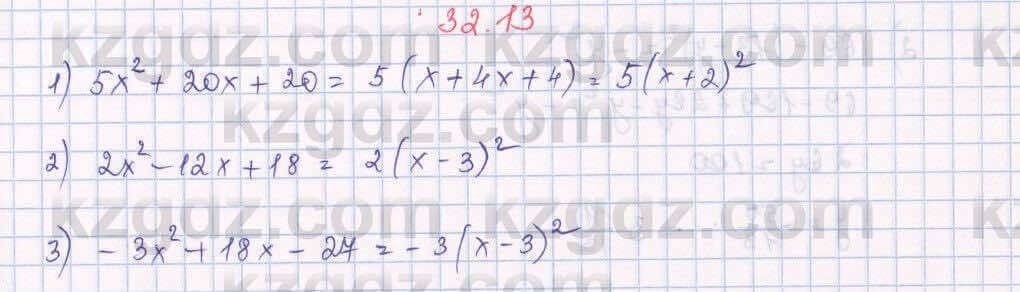 32.13
kzgdz.com kzgdz.com kzgdz
1) 5x² + 20x + 20 = 5 (x + 4x + 4) = 5 (x + 2)²
kzgdz.com kzgdz.com
2) 2x² - 12x + 18 = 2 (x - 3)²
kzgdz.com kzgdz.com kzgdz
3) - 3x² + 18x - 27 = - 3 (x - 3)²